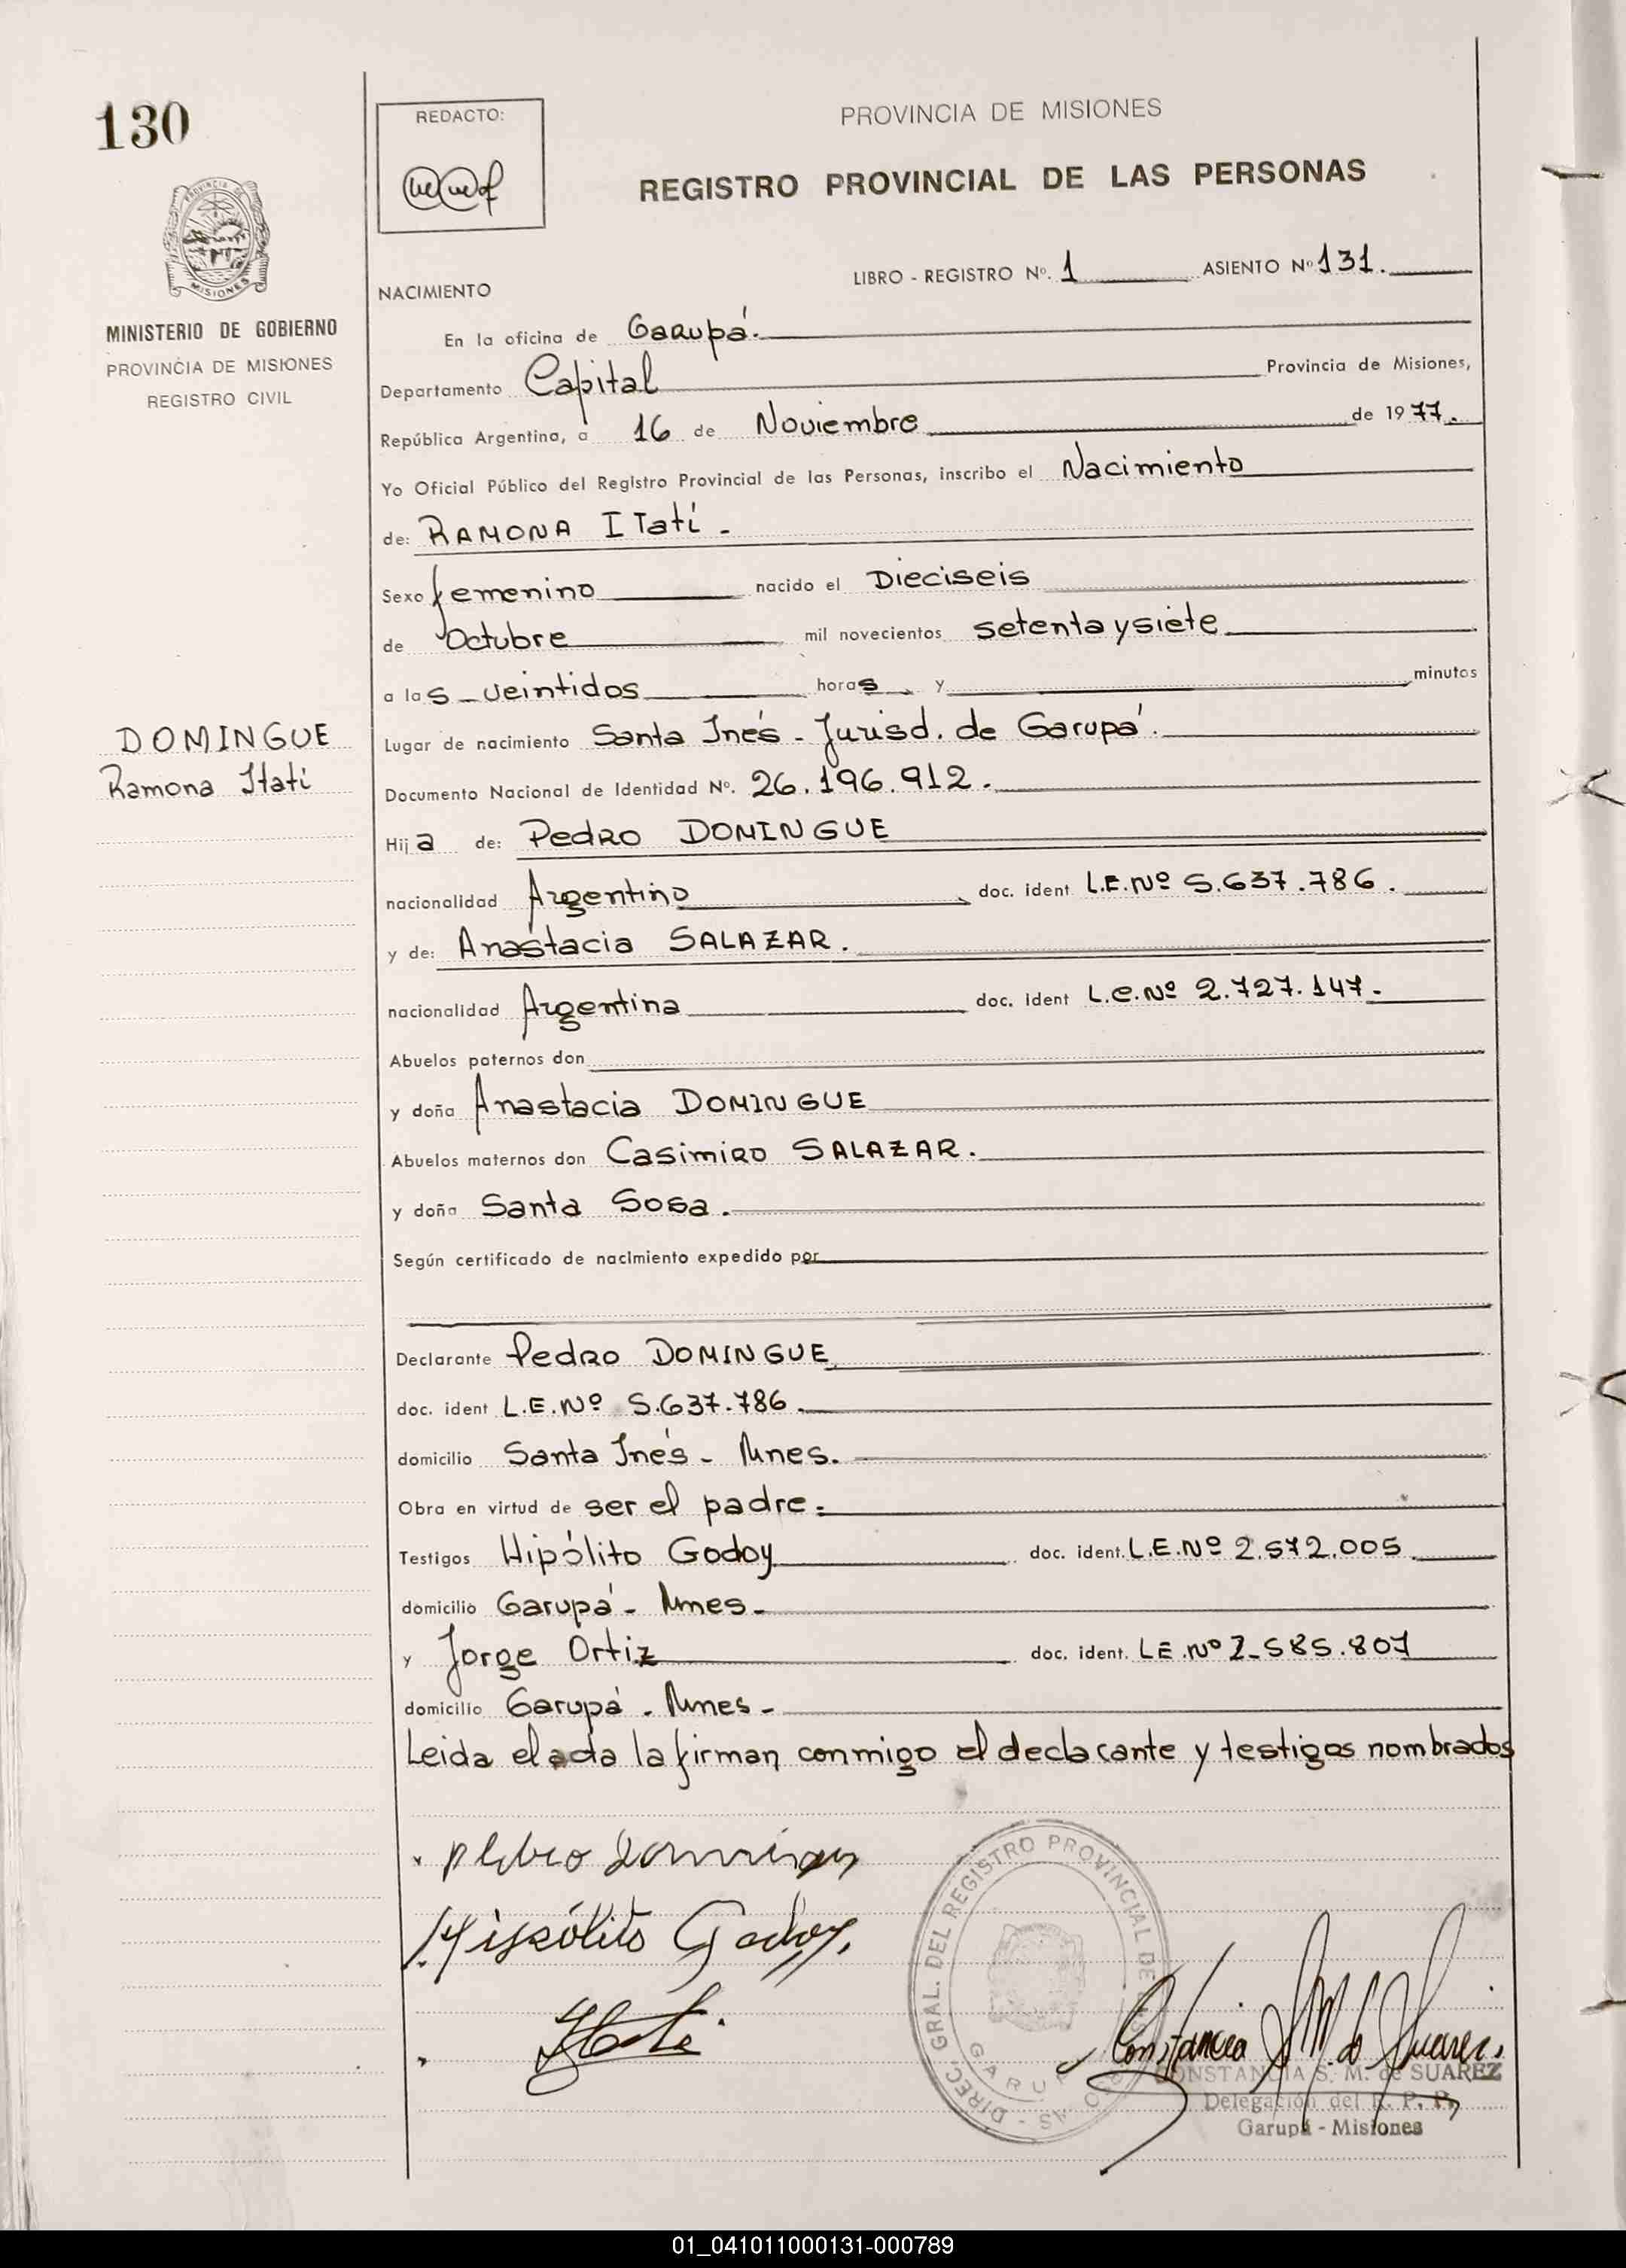 130
REDACTO:
PROVINCIA DE MISIONES
REGISTRO PROVINCIAL DE LAS PERSONAS
PROVINCIA DE
MISIONES
MINISTERIO DE GOBIERNO
PROVINCIA DE MISIONES
REGISTRO CIVIL
LIBRO - REGISTRO Nº. 1 ASIENTO Nº 131.
NACIMIENTO
En la oficina de Garupá.
Departamento Capital Provincia de Misiones,
República Argentina, a 16 de Noviembre de 1977.
Yo Oficial Público del Registro Provincial de las Personas, inscribo el Nacimiento
de: RAMONA ITatí -
Sexo femenino nacido el Dieciseis
de Octubre mil novecientos setenta y siete
a las veintidos horas y minutos
DOMINGUE
Ramona Itatí
Lugar de nacimiento Santa Inés - Jurisd. de Garupá.
Documento Nacional de Identidad Nº. 26.196.912.
Hija de: Pedro DOMINGUE
nacionalidad Argentino doc. ident L.E.Nº 5.637.786.
y de: Anastacia SALAZAR.
nacionalidad Argentina doc. ident L.C.Nº 2.727.147.
Abuelos paternos don
y doña Anastacia DOMINGUE
Abuelos maternos don Casimiro SALAZAR.
y doña Santa Sosa.
Según certificado de nacimiento expedido por
Declarante Pedro DOMINGUE
doc. ident L.E.Nº 5.637.786.
domicilio Santa Inés - Mnes.
Obra en virtud de ser el padre.
Testigos Hipólito Godoy doc. ident. L.E.Nº 2.572.005
domicilio Garupá - Mnes -
y Jorge Ortiz doc. ident. LE.Nº 7.585.807
domicilio Garupá - Mnes -
Leida el acta la firman conmigo el declarante y testigos nombrados
Hippólito Godoy.
DIREC. GRAL. DEL REGISTRO PROVINCIAL DE
GARUPA
Constancia S. M. de Suarez.
CONSTANCIA S. M. de SUAREZ
Delegación del R. P. P.
Garupá - Misiones
01_041011000131-000789